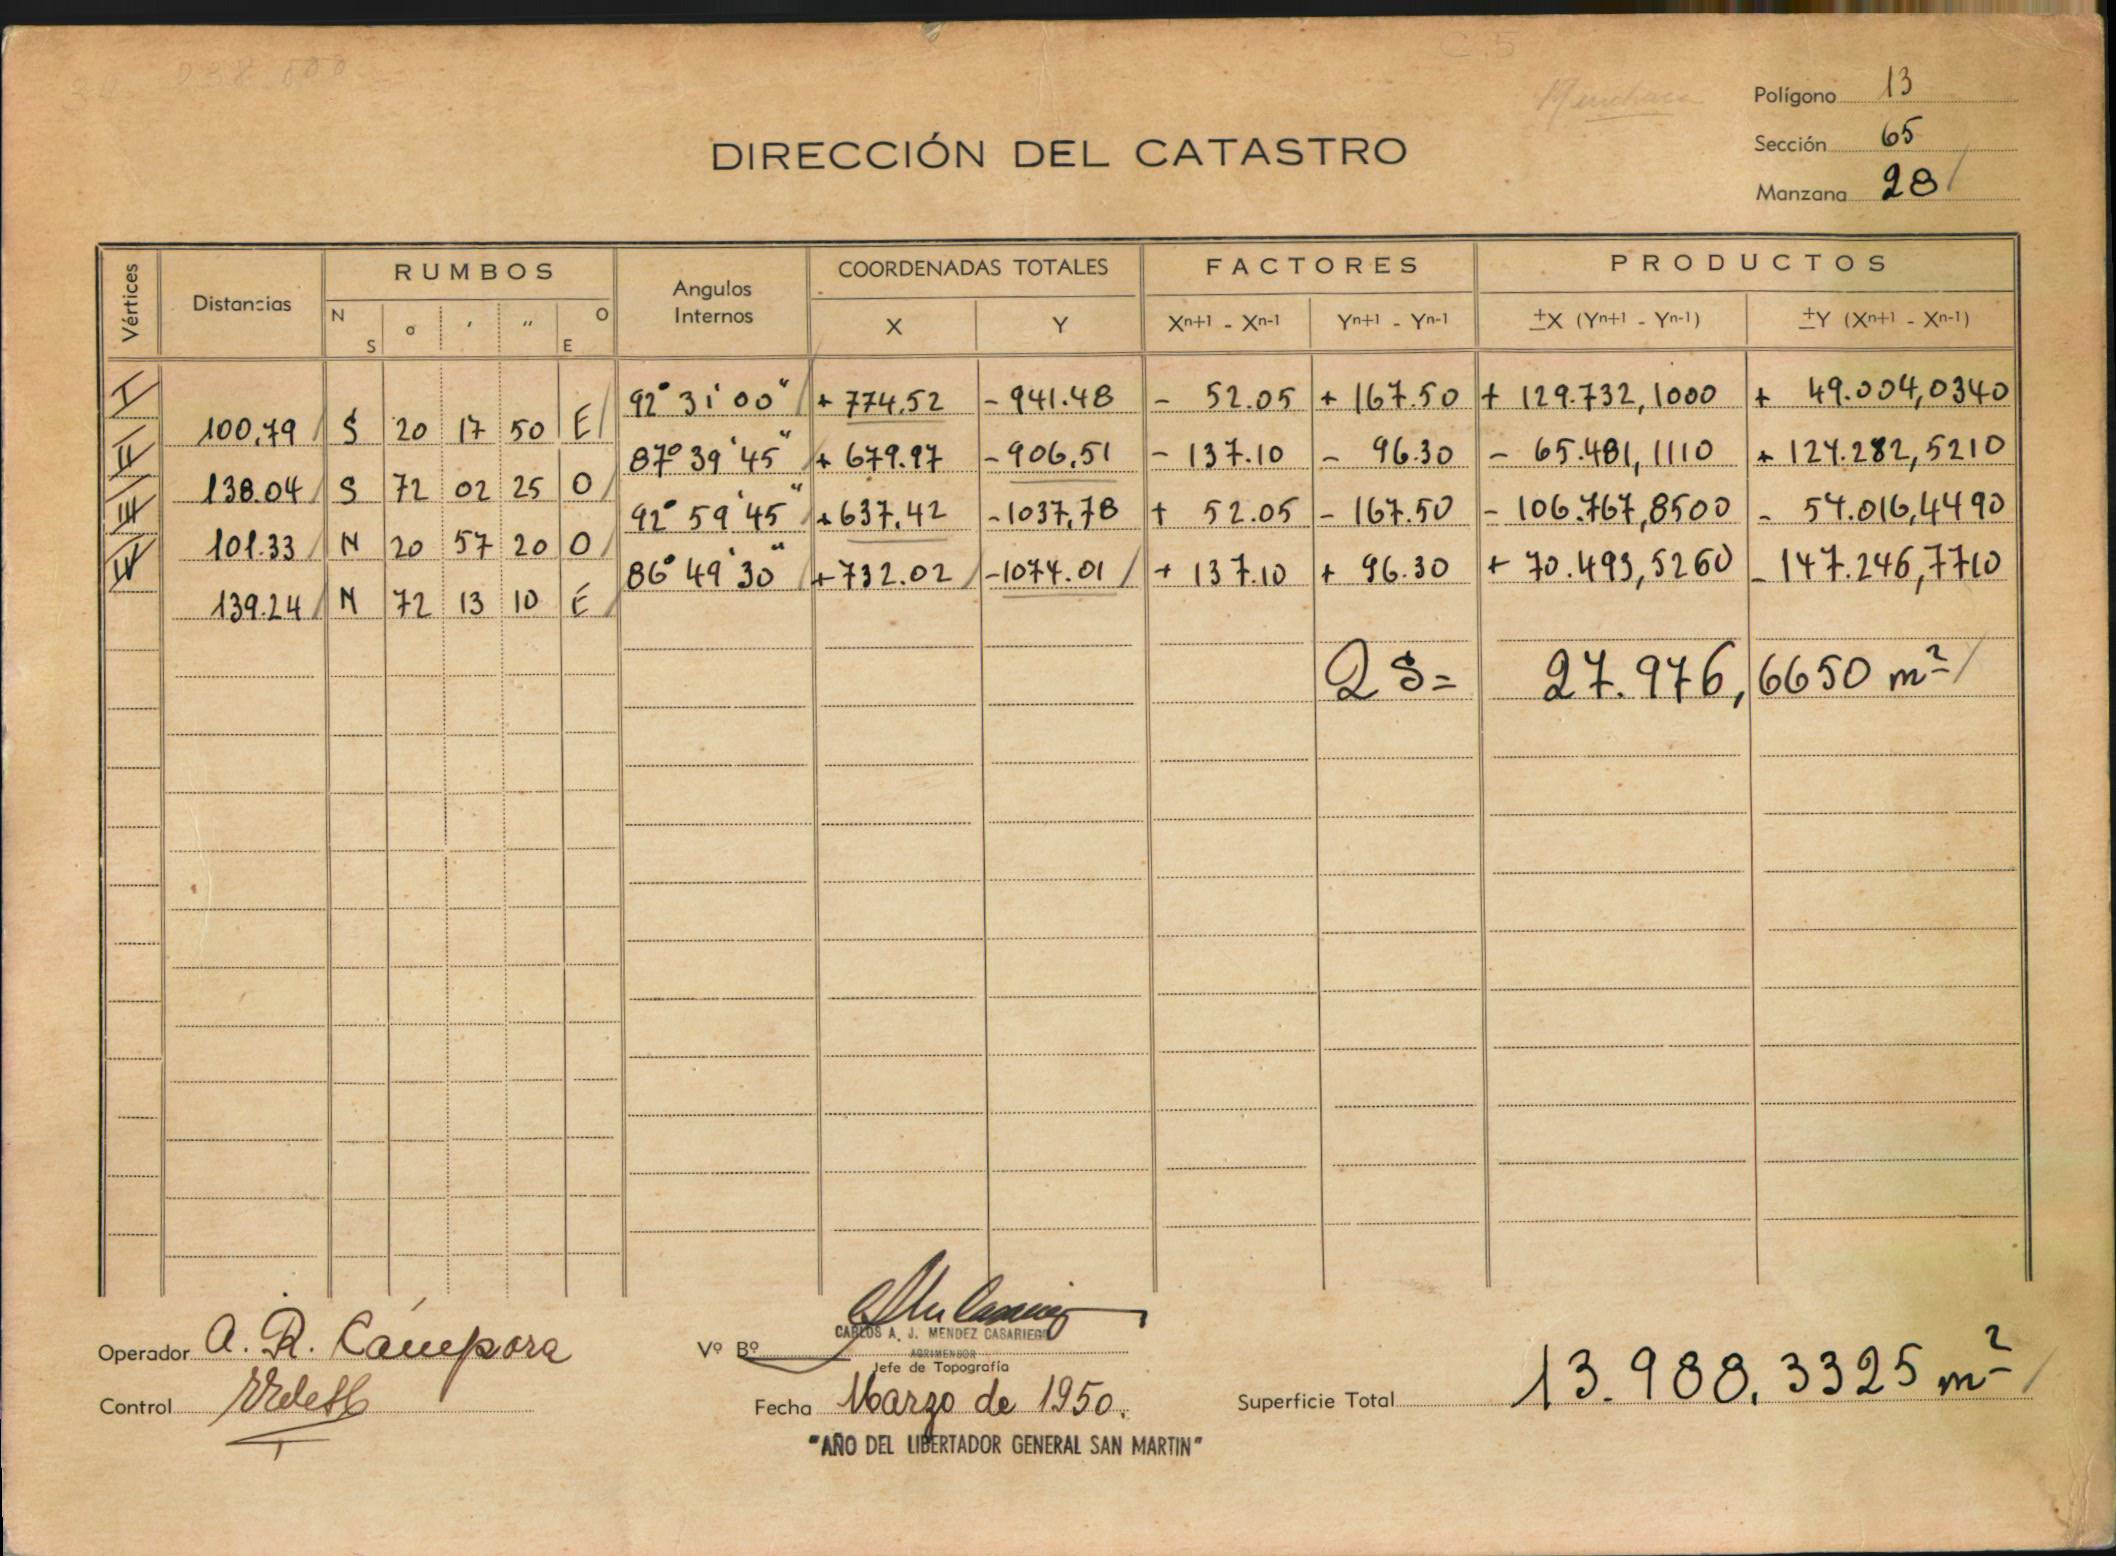 Polígono 13
DIRECCIÓN DEL CATASTRO
Sección 65
Manzana 28
Vértices Distancias RUMBOS Angulos Internos COORDENADAS TOTALES FACTORES PRODUCTOS
N S o ' " O E X Y Xn+1 - Xn-1 Yn+1 - Yn-1 ±X (Yn+1 - Yn-1) ±Y (Xn+1 - Xn-1)
I 92° 31' 00" + 774.52 - 941.48 - 52.05 + 167.50 + 129.732,1000 + 49.004,0340
100.79 S 20 17 50 E
II 87° 39' 45" + 679.97 - 906.51 - 137.10 - 96.30 - 65.481,1110 + 124.282,5210
138.04 S 72 02 25 O
III 92° 59' 45" + 637.42 - 1037,78 + 52.05 - 167.50 - 106.767,8500 - 54.016,4490
101.33 N 20 57 20 O
IV 86° 49' 30" + 732.02 - 1074.01 + 137.10 + 96.30 + 70.493,5260 - 147.246,7710
139.24 N 72 13 10 E
2 S = 27.976,6650 m²
CARLOS A. J. MENDEZ CASARIEGO
Operador A. R. Cámpora Vº Bº AGRIMENSOR
Jefe de Topografía
Control Fecha Marzo de 1950. Superficie Total 13.988.3325 m²
"AÑO DEL LIBERTADOR GENERAL SAN MARTIN"